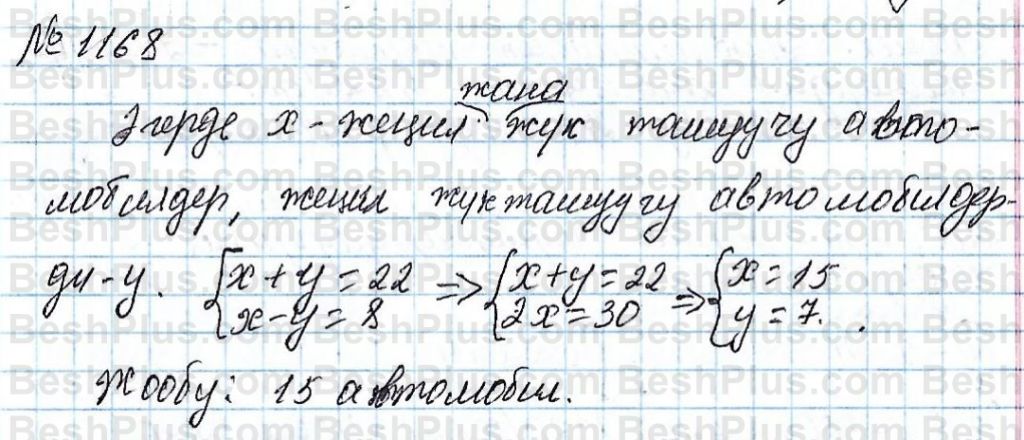 № 1168
жана
Эгерде х - жеңил жук ташуучу авто-
мобилдер, жеңил жук ташуучу автомобилдер-
ди - у. {х + у = 22 => {х + у = 22 => {х = 15
х - у = 8 2х = 30 у = 7.
Жообу: 15 автомобил.
BeshPlus.com